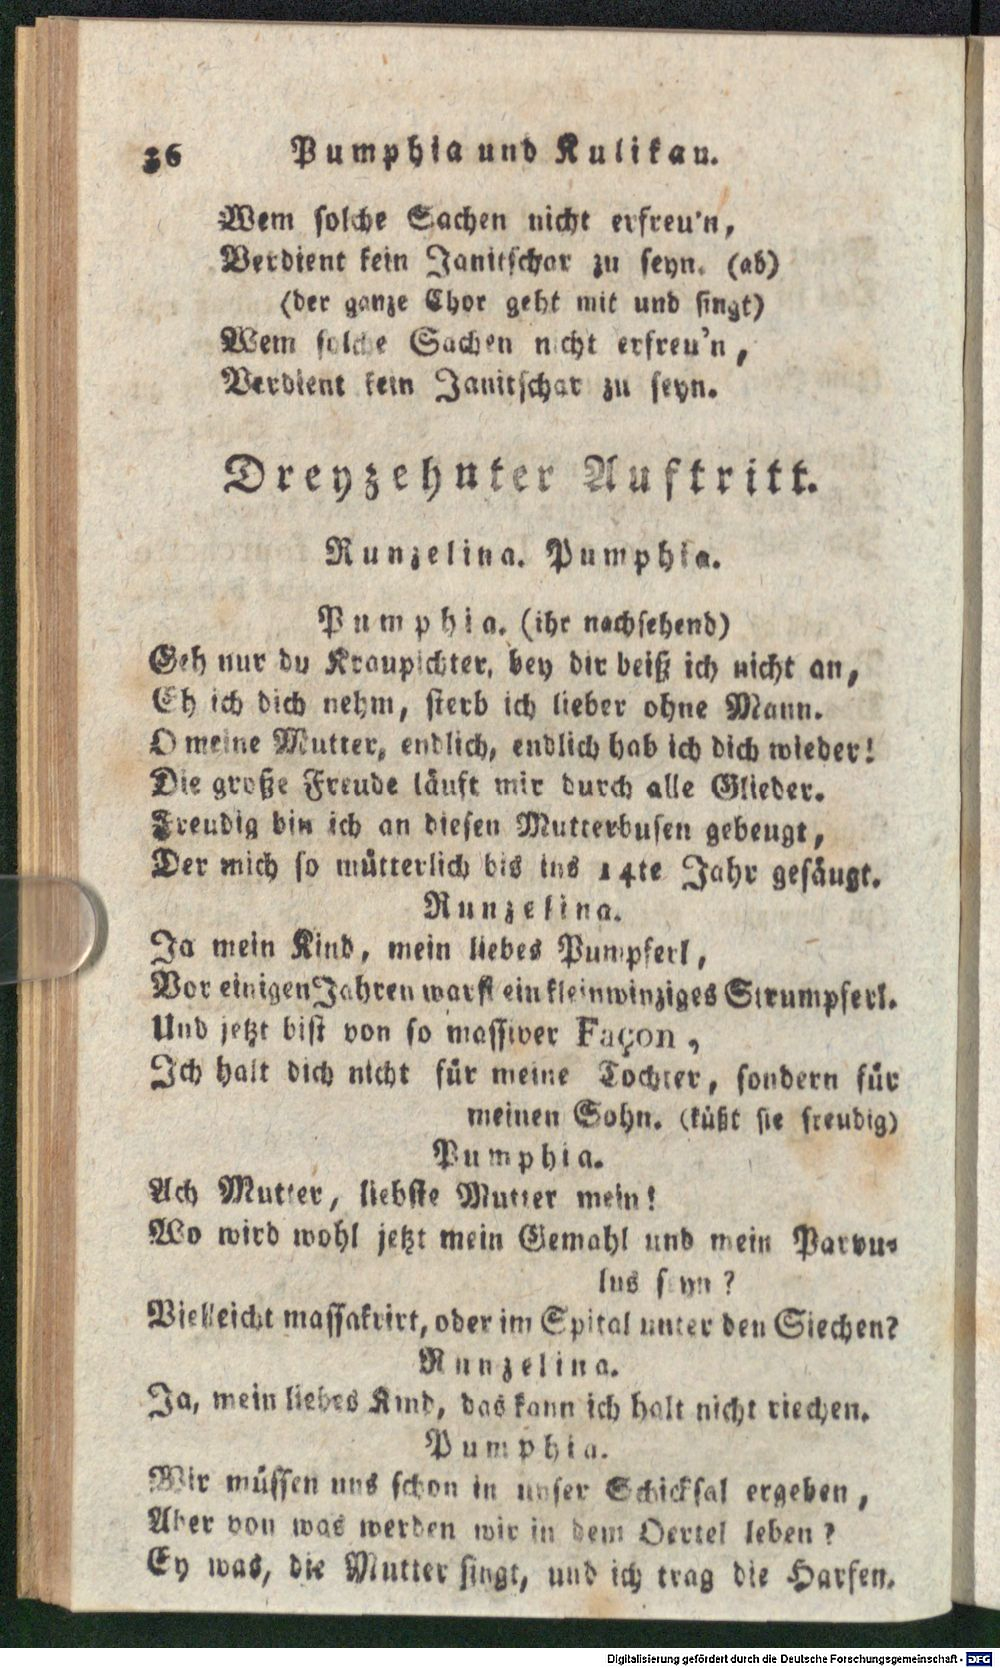 36 Pumphia und Kulikan.
Wem solche Sachen nicht erfreu'n,
Verdient kein Janitschar zu seyn. (ab)
(der ganze Chor geht mit und singt)
Wem solche Sachen nicht erfreu'n,
Verdient kein Janitschar zu seyn.
Dreyzehnter Auftritt.
Runzelina. Pumphia.
Pumphia. (ihr nachsehend)
Geh nur du Kraupichter, bey dir beiß ich nicht an,
Eh ich dich nehm, sterb ich lieber ohne Mann.
O meine Mutter, endlich, endlich hab ich dich wieder!
Die große Freude läuft mir durch alle Glieder.
Freudig bin ich an diesen Mutterbusen gebeugt,
Der mich so mütterlich bis ins 14te Jahr gesäugt.
Runzelina.
Ja mein Kind, mein liebes Pumpferl,
Vor einigen Jahren warst ein kleinwinziges Strumpferl.
Und jetzt bist von so massiver Façon,
Ich halt dich nicht für meine Tochter, sondern für
meinen Sohn. (küßt sie freudig)
Pumphia.
Ach Mutter, liebste Mutter mein!
Wo wird wohl jetzt mein Gemahl und mein Parvu-
lus seyn?
Vielleicht massakrirt, oder im Spital unter den Siechen?
Runzelina.
Ja, mein liebes Kind, das kann ich halt nicht riechen.
Pumphia.
Wir müssen uns schon in unser Schicksal ergeben,
Aber von was werden wir in dem Oertel leben?
Ey was, die Mutter singt, und ich trag die Harfen.
Digitalisierung gefördert durch die Deutsche Forschungsgemeinschaft - DFG